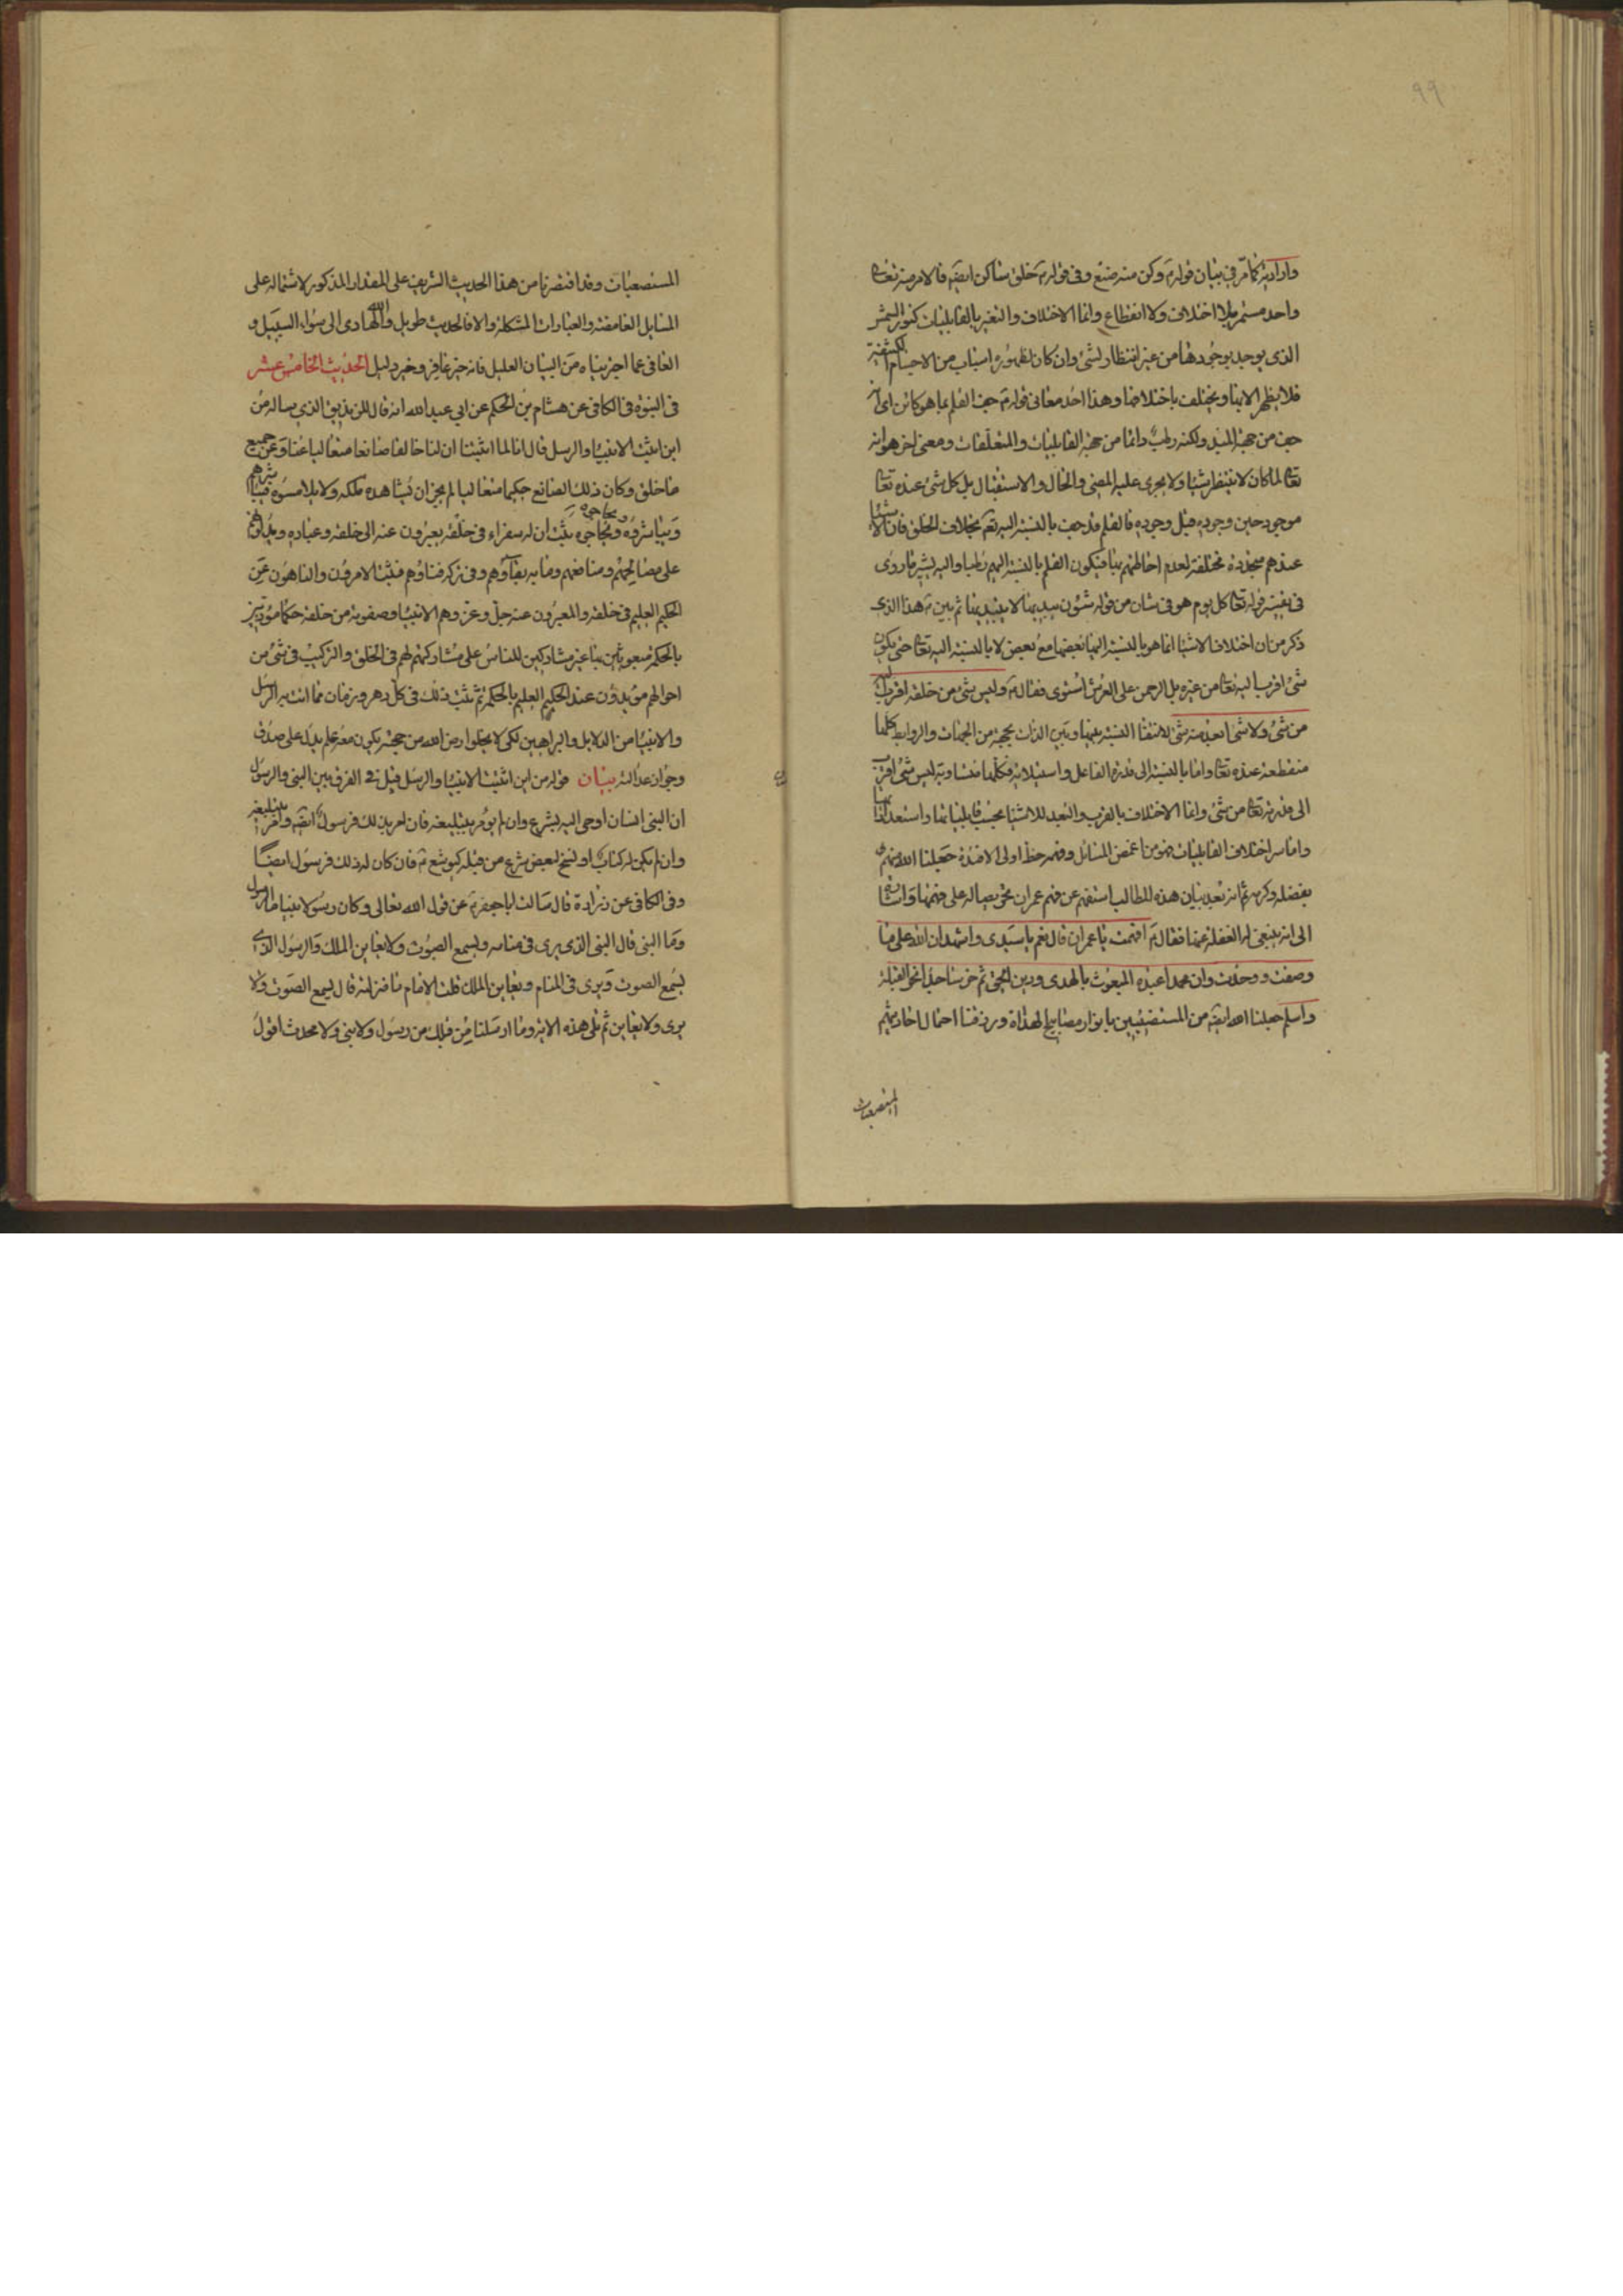 ٩٩
وارادية كما مرّ في بيان قوله ع وكن منه صنع وفي قوله ع خلق ساكن ايضه فالامر منه تعا
واحد مستمر بلا اختلاف ولا انقطاع وانما الاختلاف والتغير بالقابليات كنور الشمس
الذي يوجد بوجودها من غير انتظار لشئ وان كان لظهوره اسباب من الاجسام الكثيفة
فلا يظهر الا بها ويختلف باختلافها وهذا احد معاني قوله ع جف القلم بما هو كائن اى انه
جف من جهة المبدء ولكنه رطب دائما من جهة القابليات والمتعلقات ومعنى اخر هو انه
تعا لما كان لا ينتظر شيئا ولا يجرى عليه المضى والحال والاستقبال بل كل شئ عنده تعا
موجود حين وجوده قبل وجوده فالقلم قد جف بالنسبة اليه تعا بخلاف الخلق فان الاشياء
عندهم متجددة مختلفة لعدم احاطتهم بها فيكون القلم بالنسبة اليهم رطبا واليه يشير ما روى
في تفسير قوله تعا كل يوم هو في شان من قوله شئون يبديها لا يبتديها ثم بين ع هذا الذي
ذكر من ان اختلاف الاشياء انما هو بالنسبة اليها بعضها مع بعض لا بالنسبة اليه تعا حتى يكون
شئ اقرب اليه تعا من غيره بل الرحمن على العرش استوى فقال ع وليس شئ من خلقه اقرب اليه
من شئ ولا شئ ابعد منه من شئ لانتفاء النسبة بينها وبين الذات بجهة من الجهات والروابط كلها
منقطعة عنده تعا واما بالنسبة الى قدرة الفاعل واستيلائه فكلها متساوية ليس شئ اقرب
الى قدرته تعا من شئ وانما الاختلاف بالقرب والبعد للاشياء بحسب قابلياتها واستعداداتها
واما سر اختلاف القابليات فهو من اغمض المسائل وفهمه حظ اولى الافئدة جعلنا الله منهم
بفضله وكرمه ثم انه بعد بيان هذه المطالب استفهم عن فهم عمران على فهمها واشارة
الى انه ينبغي له الغفلة عنها فقال ع افهمت يا عمران قال نعم يا سيدى واشهد ان الله على ما
وصفت ووحدت وان محمدا عبده المبعوث بالهدى ودين الحق ثم خر ساجدا نحو القبلة
واسلم جعلنا الله ايضه من المستضيئين بانوار مصابيح الهداة ورزقنا احتمال احاديثهم
المستصعبات
المستصعبات وقد اقتصرنا من هذا الحديث الشريف على المقدار المذكور لاشتماله على
المسايل الغامضة والعبارات المشكلة والا فالحديث طويل والله الهادى الى سواء السبيل و
العافي عما اجترينا به من البيان العليل فانه خير غافر وخير دليل الحديث الخامس عشر
في النبوة في الكافي عن هشام بن الحكم عن ابي عبد الله انه قال للزنديق الذي يساله من
اين اثبت الانبيا والرسل قال انا لما اثبتنا ان لنا خالقا صانعا متعاليا عنا وعن جميع
ما خلق وكان ذلك الصانع حكيما متعاليا لم يجز ان يشاهده خلقه ولا يلامسوه فيباشرهم
ويباشروه ويحاجهم ويحاجوه ثبت ان له سفراء في خلقه يعبرون عنه الى خلقه وعباده ويدلونهم
على مصالحهم ومنافعهم وما به بقاؤهم وفي تركه فناؤهم فثبت الامرون والناهون عن
الحكيم العليم في خلقه والمعبرون عنه جل وعز وهم الانبيا وصفوته من خلقه حكما مؤدبين
بالحكمة مبعوثين بها غير مشاركين للناس على مشاركتهم لهم في الخلق والتركيب في شئ من
احوالهم مؤيدون عند الحكيم العليم بالحكمة ثم ثبت ذلك في كل دهر وزمان مما اتت به الرسل
والانبيا من الدلايل والبراهين لكى لا يخلو ارض الله من حجة يكون معه علم يدل على صدق
وجواز عدالته بيان قوله من اين اثبت الانبيا والرسل قيل في الفرق بين النبي والرسول
ان النبي انسان اوحى اليه بشرع وان لم يؤمر بتبليغه فان امر بذلك فرسول ايضه وامر بتبليغه
وان لم يكن له كتاب او نسخ لبعض شرع من قبله كيوشع ع فان كان له ذلك فرسول ايضا
وفي الكافي عن زرارة قال سالت ابا جعفر ع عن قول الله تعالى وكان رسولا نبيا ما الرسول
وما النبي قال النبي الذي يرى في منامه ويسمع الصوت ولا يعاين الملك والرسول الذي
يسمع الصوت ويرى في المنام ويعاين الملك قلت الامام ما منزلته قال يسمع الصوت ولا
يرى ولا يعاين ثم تلى هذه الاية وما ارسلنا من قبلك من رسول ولا نبي ولا محدث اقول